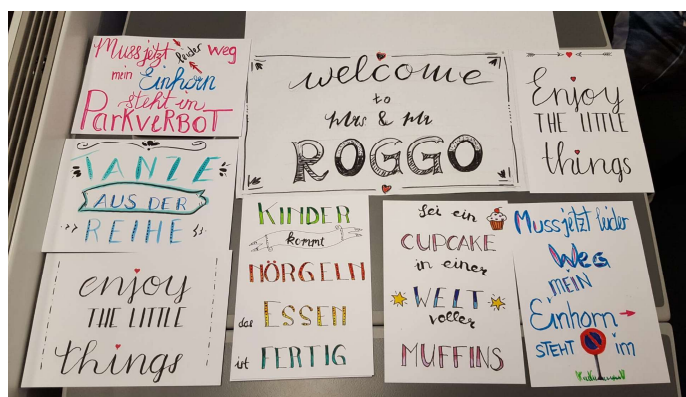 Muss jetzt leider weg
mein Einhorn
steht im
PARKVERBOT
welcome
to
Mrs & Mr
ROGGO
Enjoy
THE LITTLE
things
TANZE
AUS DER
REIHE
enjoy
THE LITTLE
things
KINDER
kommt
NÖRGELN
das ESSEN
ist FERTIG
Sei ein
CUPCAKE
in einer
WELT
voller
MUFFINS
Muss jetzt leider
Weg
MEIN
Einhorn
STEHT im